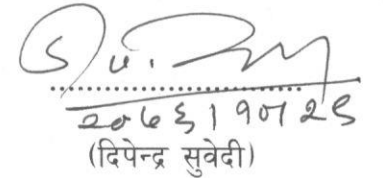 ..............................
२०७६।१०।२९
(दिपेन्द्र सुवेदी)